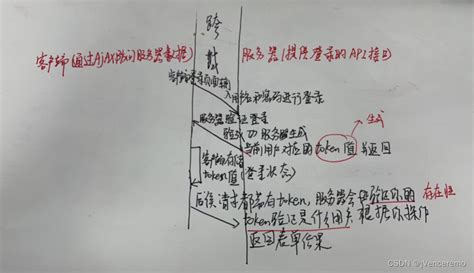 跨
域
客户端(通过AjAX访问服务器数据)
服务器(提供登录的API接口)
客户端登录页面输
入用户名和密码进行登录
服务器验证登录
验证成功服务器生成 生成
与当前用户对应的token值 并返回
客户端存储
token值(登录状态)
后续请求都带有token,服务器会 存在性
token验证是什么用户 根据你操作
返回表单结果
CSDN @jVenceremo